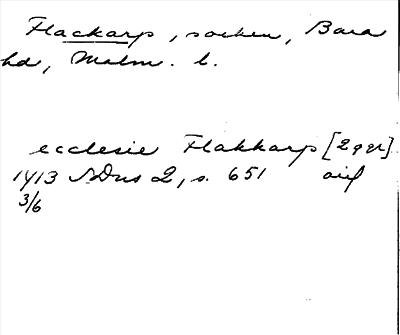 Flackarp, socken, Bara
hd, Malm. l.
ecclesie Flakkarp [2 ggr]
1413 SDns 2, s. 651 avij
3/6